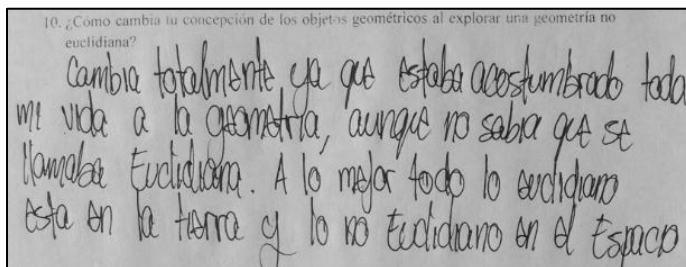 10. ¿Cómo cambia tu concepción de los objetos geométricos al explorar una geometría no
euclidiana?
Cambia totalmente ya que estaba acostumbrado toda
mi vida a la geometría, aunque no sabia que se
llamaba Euclidiana. A lo mejor todo lo euclidiano
esta en la tierra y lo no Euclidiano en el Espacio